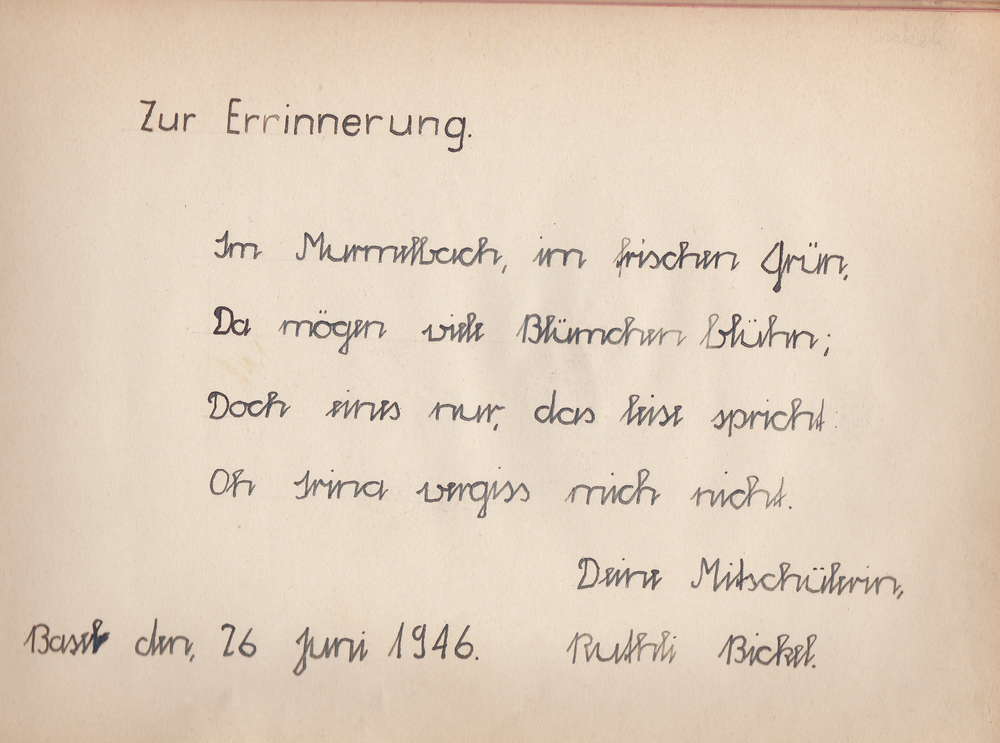 Zur Errinnerung.
Im Murmelbach, im frischen Grün,
Da mögen viele Blümchen blühn;
Doch eines nur, das leise spricht.
Oh Irina vergiss mich nicht.
Deine Mitschülerin,
Basel den, 26 Juni 1946. Ruthli Bickel.